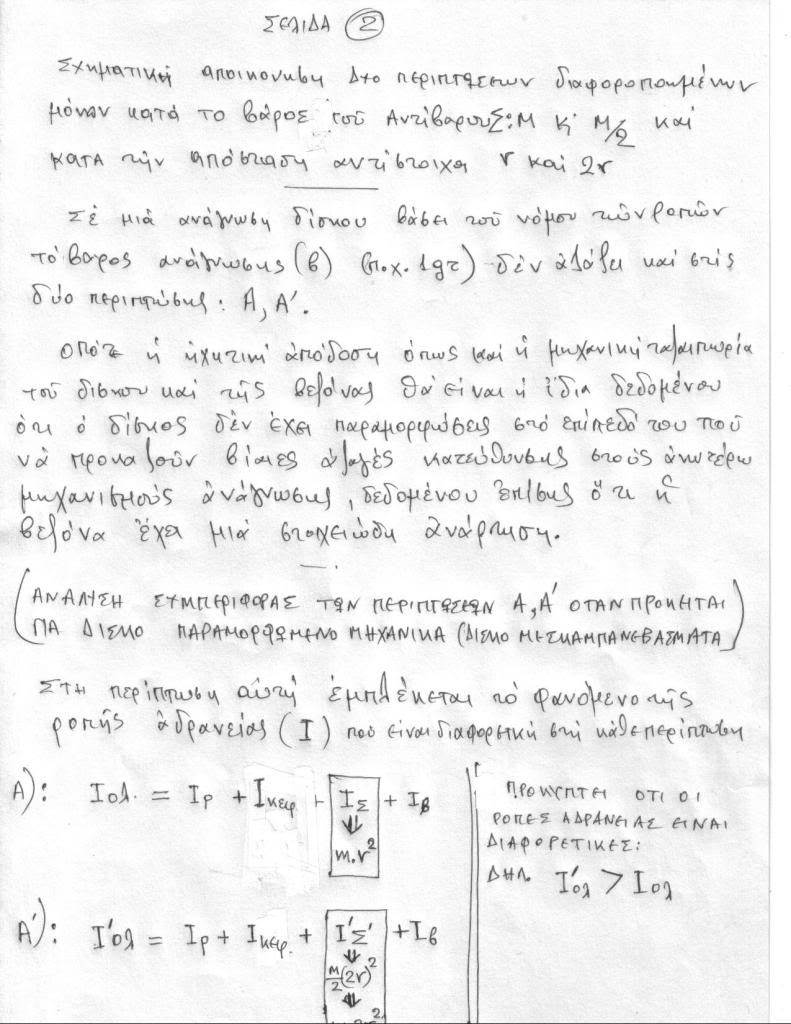 ΣΕΛΙΔΑ 2
Σχηματική απεικόνηση δυο περιπτώσεων διαφοροποιημένων
μόνον κατά το βάρος τοῦ ΑντίβαρουΣ: Μ κ' Μ/2 και
κατα τήν απόσταση αντίστοιχα r και 2r
Σέ μιά ανάγνωση δίσκου βάσει τοῦ νόμου τῶν ροπῶν
τό βαρος ανάγνωσης (β) (π.χ. 1gr) δέν ἀλάζει και στίς
δύο περιπτώσης: Α, Α'.
Οπότε ἡ ηχητική ἀπόδοση όπως και ἡ μηχανική ταλαιπωρία
τοῦ δίσκου και τῆς βελόνας θά είναι ἡ ἴδια δεδομένου
ότι ὁ δίσκος δέν έχει παραμορφώσεις στό επίπεδό του πού
νά προκαλοῦν βίαιες ἀλλαγές κατεύθυνσης στούς ἀνωτέρω
μηχανισμούς ἀνάγνωσης, δεδομένου ἐπίσης ὅτι ἡ
βελόνα ἔχει μιά στοιχειώδη ἀνάρτηση.
(ΑΝΑΛΥΣΗ ΣΥΜΠΕΡΙΦΟΡΑΣ ΤΩΝ ΠΕΡΙΠΤΩΣΕΩΝ Α, Α' ΟΤΑΝ ΠΡΟΚΗΤΑΙ
ΓΙΑ ΔΙΣΚΟ ΠΑΡΑΜΟΡΦΩΜΕΝΟ ΜΗΧΑΝΙΚΑ (ΔΙΣΚΟ ΜΕ ΣΚΑΜΠΑΝΕΒΑΣΜΑΤΑ)
Στη περίπτωση αὐτή ἐμπλέκεται τό φανόμενο τῆς
ροπῆς ἀδρανείας (Ι) που είναι διαφορετική στή κάθε περίπτωση
Α): Ιολ. = Ιρ + Ικεφ. + ΙΣ + Ιβ
⇓
m.r²
ΠΡΟΚΥΠΤΕΙ ΟΤΙ ΟΙ
ΡΟΠΕΣ ΑΔΡΑΝΕΙΑΣ ΕΙΝΑΙ
ΔΙΑΦΟΡΕΤΙΚΕΣ:
ΔΗΛ. Ι'ολ > Ιολ
Α'): Ι'ολ = Ιρ + Ικεφ. + Ι'Σ' + Ιβ
⇓
M/2 (2r)²
⇓